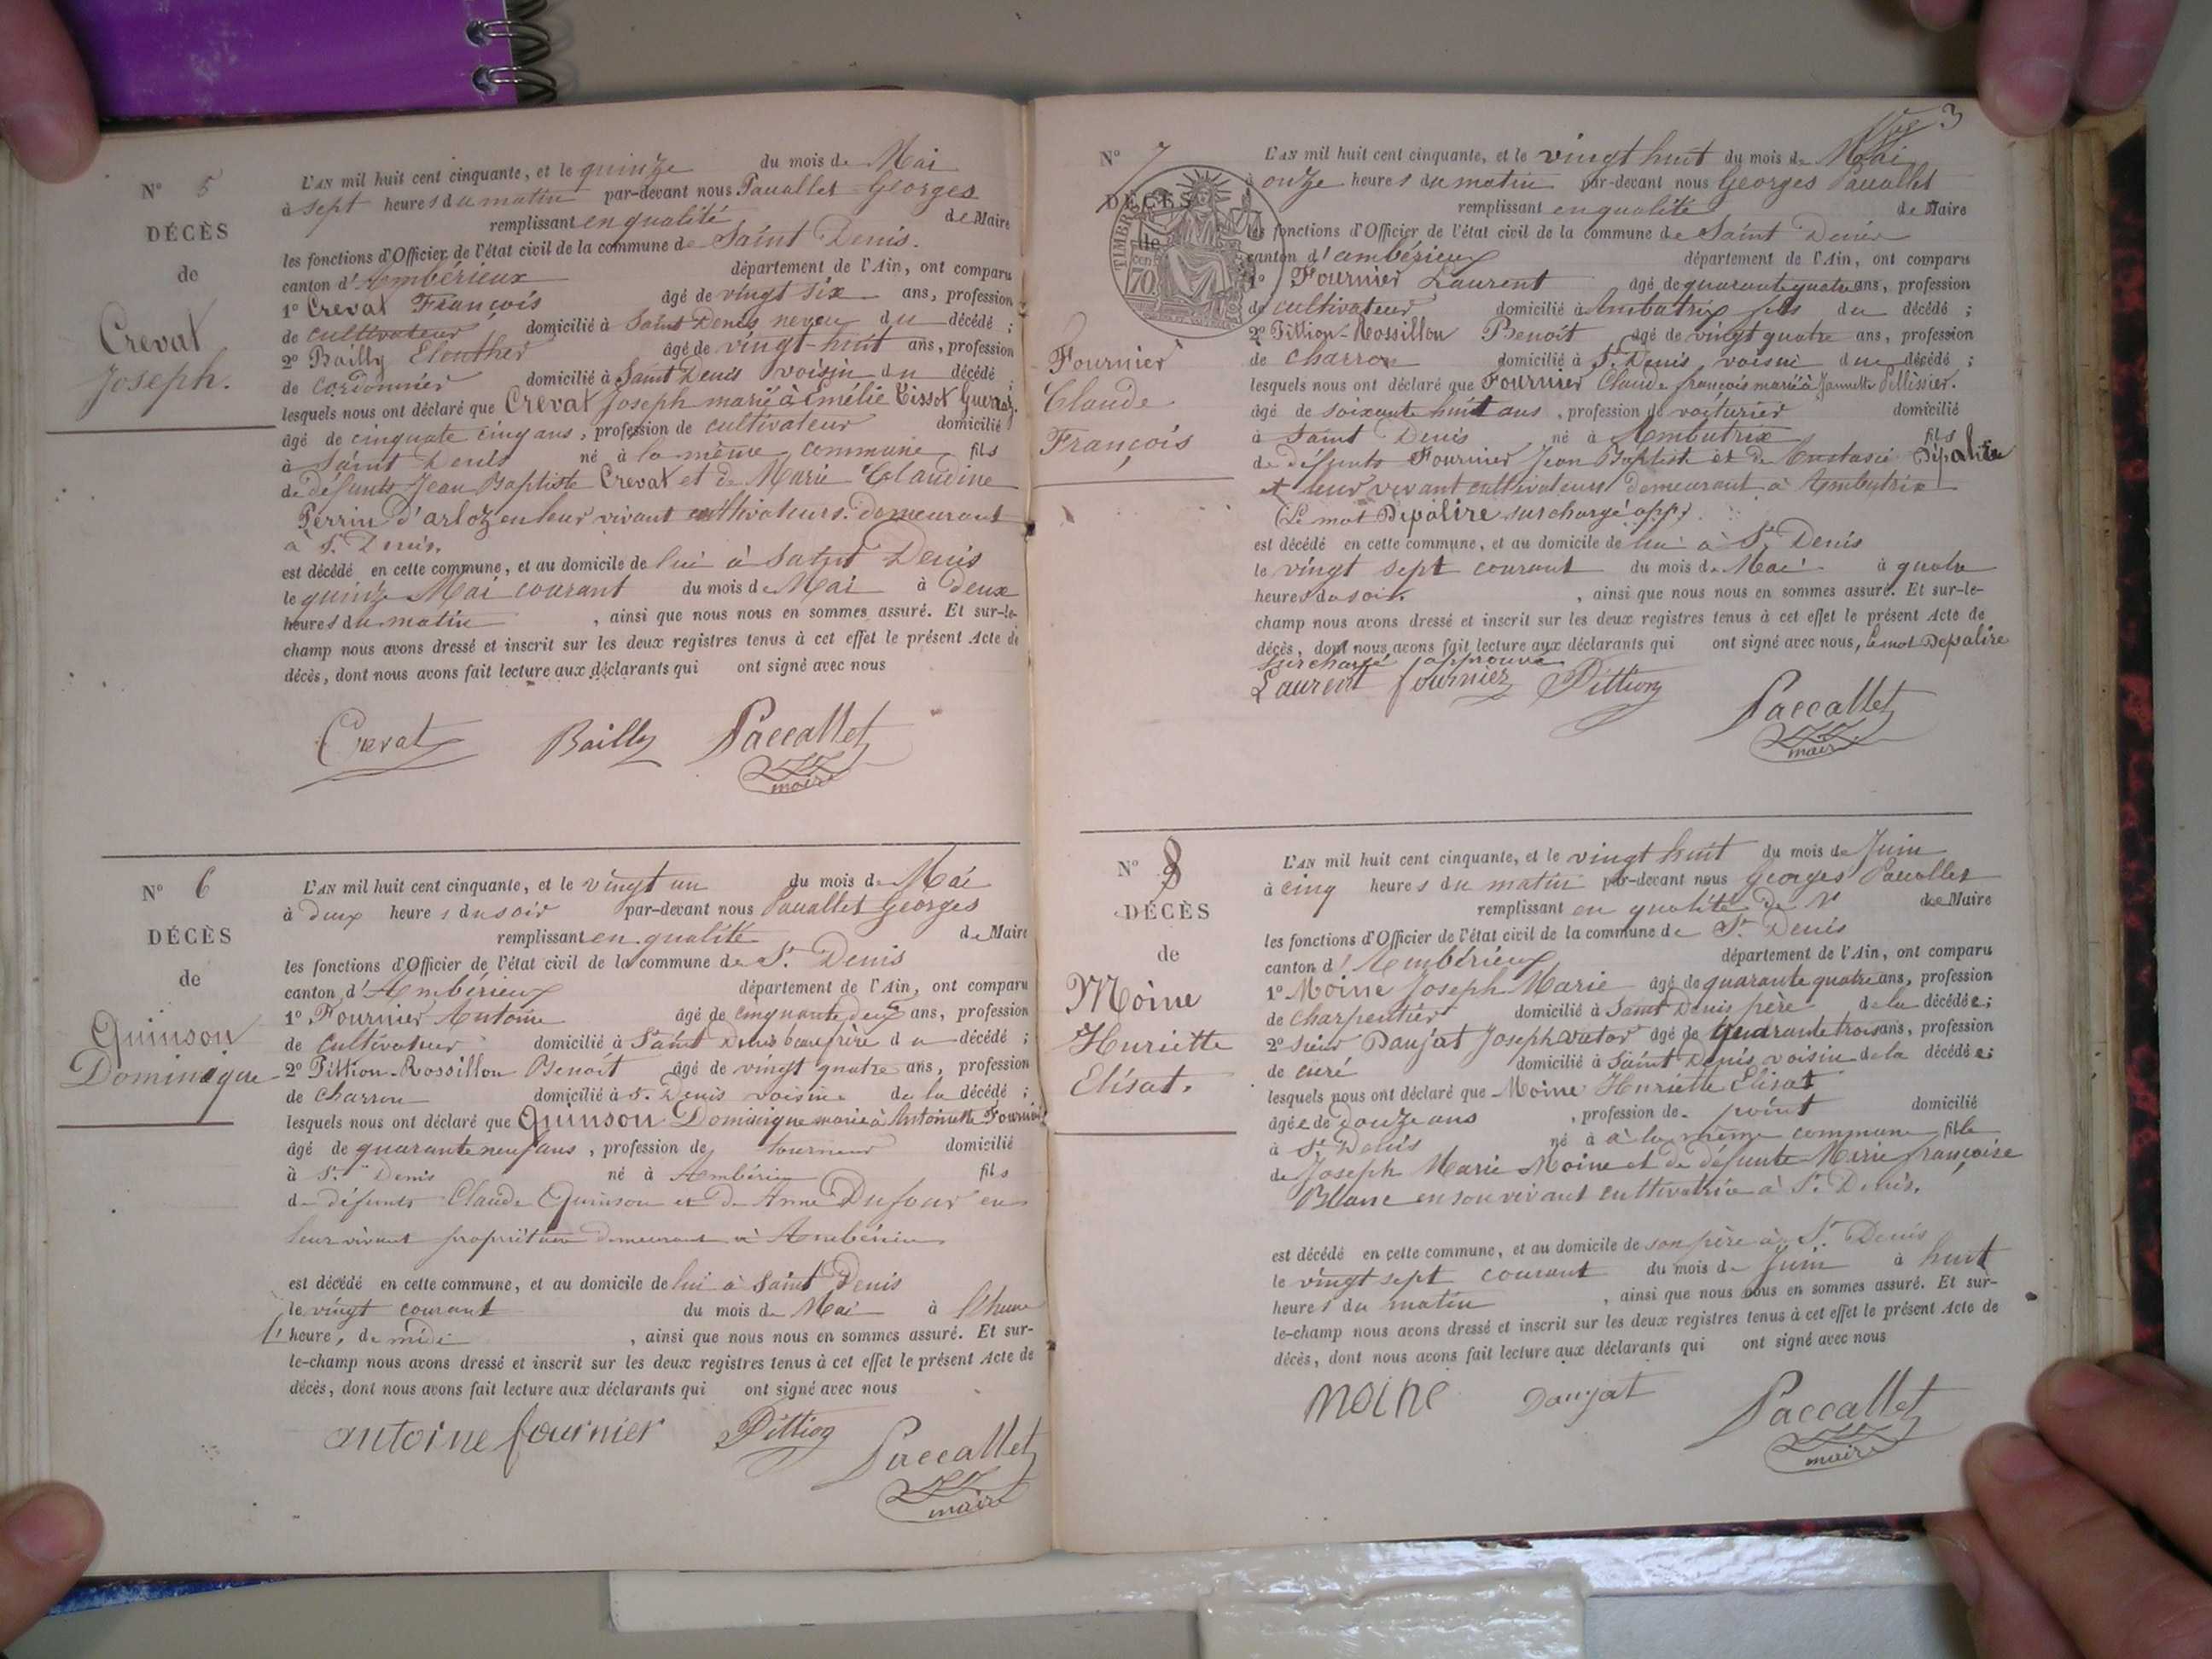 N° 5
DÉCÈS
de
Crevat
Joseph.
L'AN mil huit cent cinquante, et le quinze du mois de Mai
à sept heures du matin par-devant nous Paccallet Georges
remplissant en qualité de Maire
les fonctions d'Officier de l'état civil de la commune de Saint Denis.
canton d'Ambérieux département de l'Ain, ont comparu
1° Crevat François âgé de vingt six ans, profession
de cultivateur domicilié à Saint Denis neveu du décédé ;
2° Bailly Eleuther âgé de vingt-huit ans, profession
de cordonnier domicilié à Saint Denis voisin du décédé ;
lesquels nous ont déclaré que Crevat Joseph marié à Emélie Tissot Guerraz.
âgé de cinquate cinq ans, profession de cultivateur domicilié
à Saint Denis né à la même commune fils
de défunts Jean Baptiste Crevat et de Marie Claudine
Perrin d'arloz en leur vivant cultivateurs demeurant
à St. Denis.
est décédé en cette commune, et au domicile de lui à Saint Denis
le quinze Mai courant du mois de Mai à deux
heures du matin , ainsi que nous nous en sommes assuré. Et sur-le-
champ nous avons dressé et inscrit sur les deux registres tenus à cet effet le présent Acte de
décès, dont nous avons fait lecture aux déclarants qui ont signé avec nous
Crevat Bailly Paccallet
maire
N° 6
DÉCÈS
de
Quinson
Dominique
L'AN mil huit cent cinquante, et le vingt un du mois de Mai
à deux heures du soir par-devant nous Paccallet Georges
remplissant en qualité de Maire
les fonctions d'Officier de l'état civil de la commune de St. Denis
canton d'Ambérieux département de l'Ain, ont comparu
1° Fournier Antoine âgé de cinquante deux ans, profession
de cultivateur domicilié à Saint Denis beaufrère du décédé ;
2° Pittion-Rossillon Benoit âgé de vingt quatre ans, profession
de charron domicilié à S. Denis voisin de la décédé ;
lesquels nous ont déclaré que Quinson Dominique marié à Antoinette Fournier
âgé de quarante neuf ans, profession de tourneur domicilié
à St. Denis né à Ambérieu fils
de défunts Claude Quinson et de Anne Dufour en
leur vivant propriétaires demeurant à Ambérieu
est décédé en cette commune, et au domicile de lui à Saint Denis
le vingt courant du mois de Mai à
heure, de midi , ainsi que nous nous en sommes assuré. Et sur-
le-champ nous avons dressé et inscrit sur les deux registres tenus à cet effet le présent Acte de
décès, dont nous avons fait lecture aux déclarants qui ont signé avec nous
antoine fournier Pittion Paccallet
maire
3
N° 7
DÉCÈS
de
TIMBRE
70
Fournier
Claude
François
L'AN mil huit cent cinquante, et le vingt huit du mois de Mai
à onze heures du matin par-devant nous Georges Paccallet
remplissant en qualité de Maire
les fonctions d'Officier de l'état civil de la commune de Saint Denis
canton d'ambérieux département de l'Ain, ont comparu
1° Fournier Laurent âgé de quarante quatre ans, profession
de cultivateur domicilié à Ambutrix fils du décédé ;
2° Pittion-Rossillon Benoit âgé de vingt quatre ans, profession
de charron domicilié à St. Denis voisin du décédé ;
lesquels nous ont déclaré que Fournier Claude françois marié à Jannette Pellissier.
âgé de soixante huit ans, profession de voiturier domicilié
à Saint Denis né à Ambutrix fils
de défunts Fournier Jean Baptiste et de Anstasie Dépalire
et leur vivant cultivateurs demeurant à Ambutrix
(Le mot Depalire surchargé app)
est décédé en cette commune, et au domicile de lui à St. Denis
le vingt sept courant du mois de Mai à quatre
heures du soir. , ainsi que nous nous en sommes assuré. Et sur-le-
champ nous avons dressé et inscrit sur les deux registres tenus à cet effet le présent Acte de
décès, dont nous avons fait lecture aux déclarants qui ont signé avec nous, le mot Depalire
surchargé approuvé
Laurent fournier Pittion Paccallet
maire
N° 8
DÉCÈS
de
Moine
Henriette
Elisat.
L'AN mil huit cent cinquante, et le vingt huit du mois de Juin
à cinq heures du matin par-devant nous Georges Paccallet
remplissant en qualité de Maire
les fonctions d'Officier de l'état civil de la commune de St. Denis
canton d'Ambérieux département de l'Ain, ont comparu
1° Moine Joseph Marie âgé de quarante quatre ans, profession
de charpentier domicilié à Saint Denis père de la décédée;
2° sieur Daujat Joseph âgé de quarante trois ans, profession
de curé domicilié à Saint Denis voisin de la décédée;
lesquels nous ont déclaré que Moine Henriette Elisat
âgée de douze ans , profession de point domicilié
à St Denis né à à la même commune fille
de Joseph Marie Moine et de défunte Marie françoise
Blanc en son vivant cultivatrice à St. Denis.
est décédé en cette commune, et au domicile de son père à St. Denis
le vingt sept courant du mois de Juin à huit
heures du matin , ainsi que nous nous en sommes assuré. Et sur-
le-champ nous avons dressé et inscrit sur les deux registres tenus à cet effet le présent Acte de
décès, dont nous avons fait lecture aux déclarants qui ont signé avec nous
moine Daujat Paccallet
maire